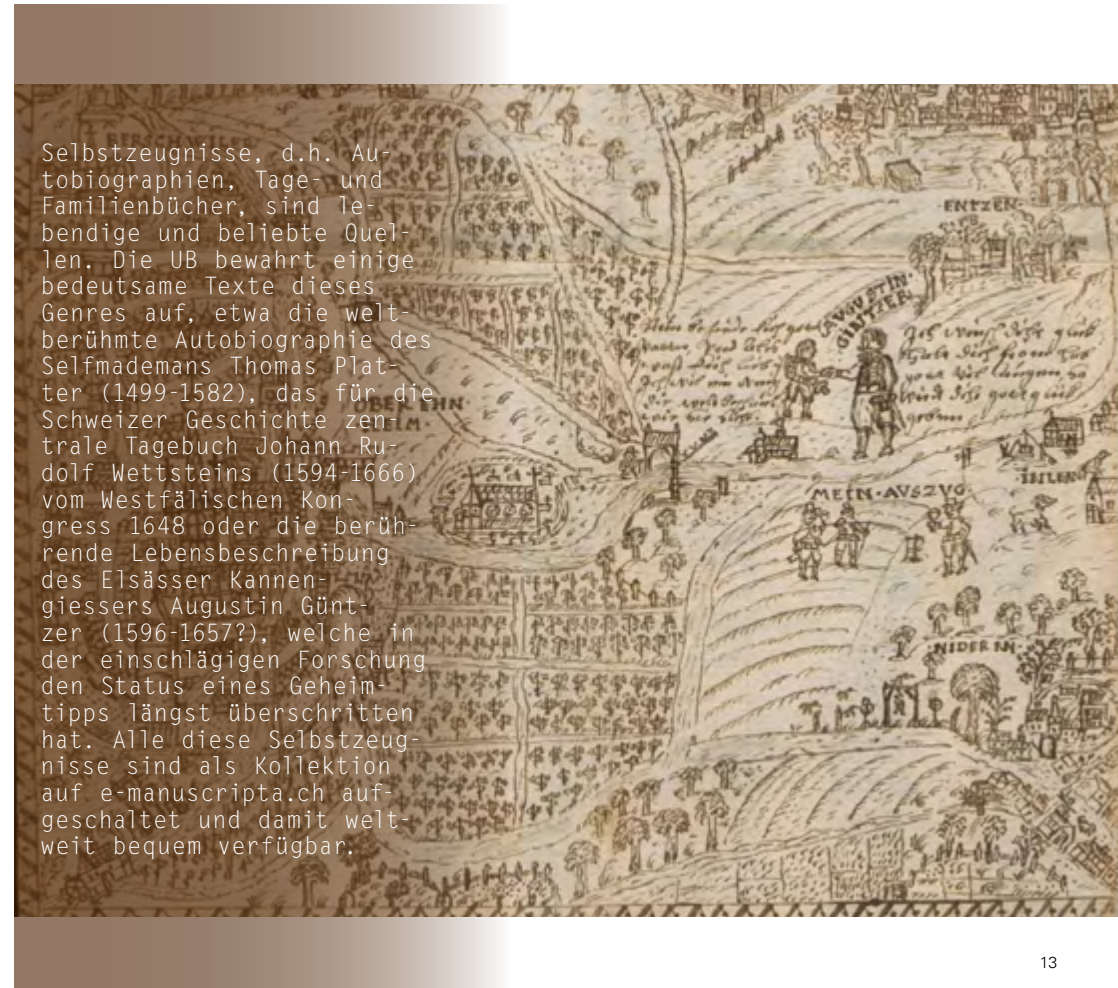 Selbstzeugnisse, d.h. Au-
tobiographien, Tage- und
Familienbücher, sind le-
bendige und beliebte Quel-
len. Die UB bewahrt einige
bedeutsame Texte dieses
Genres auf, etwa die welt-
berühmte Autobiographie des
Selfmademans Thomas Plat-
ter (1499-1582), das für die
Schweizer Geschichte zen-
trale Tagebuch Johann Ru-
dolf Wettsteins (1594-1666)
vom Westfälischen Kon-
gress 1648 oder die berüh-
rende Lebensbeschreibung
des Elsässer Kannen-
giessers Augustin Günt-
zer (1596-1657?), welche in
der einschlägigen Forschung
den Status eines Geheim-
tipps längst überschritten
hat. Alle diese Selbstzeug-
nisse sind als Kollektion
auf e-manuscripta.ch auf-
geschaltet und damit welt-
weit bequem verfügbar.
ENTZEN-
AUGUSTIN·
GÜNTZER·
MEIN·AVSZVG
NIDEREN·
13